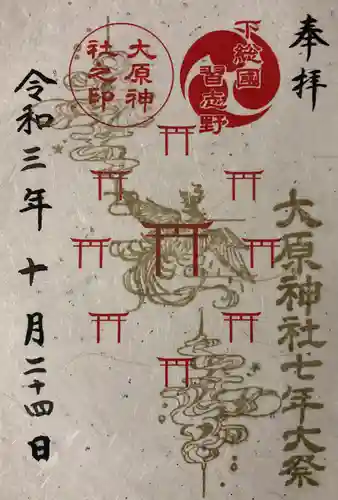 奉拝
下総国
習志野
大原神社七年大祭
大原神
社之印
令和三年十月二十四日